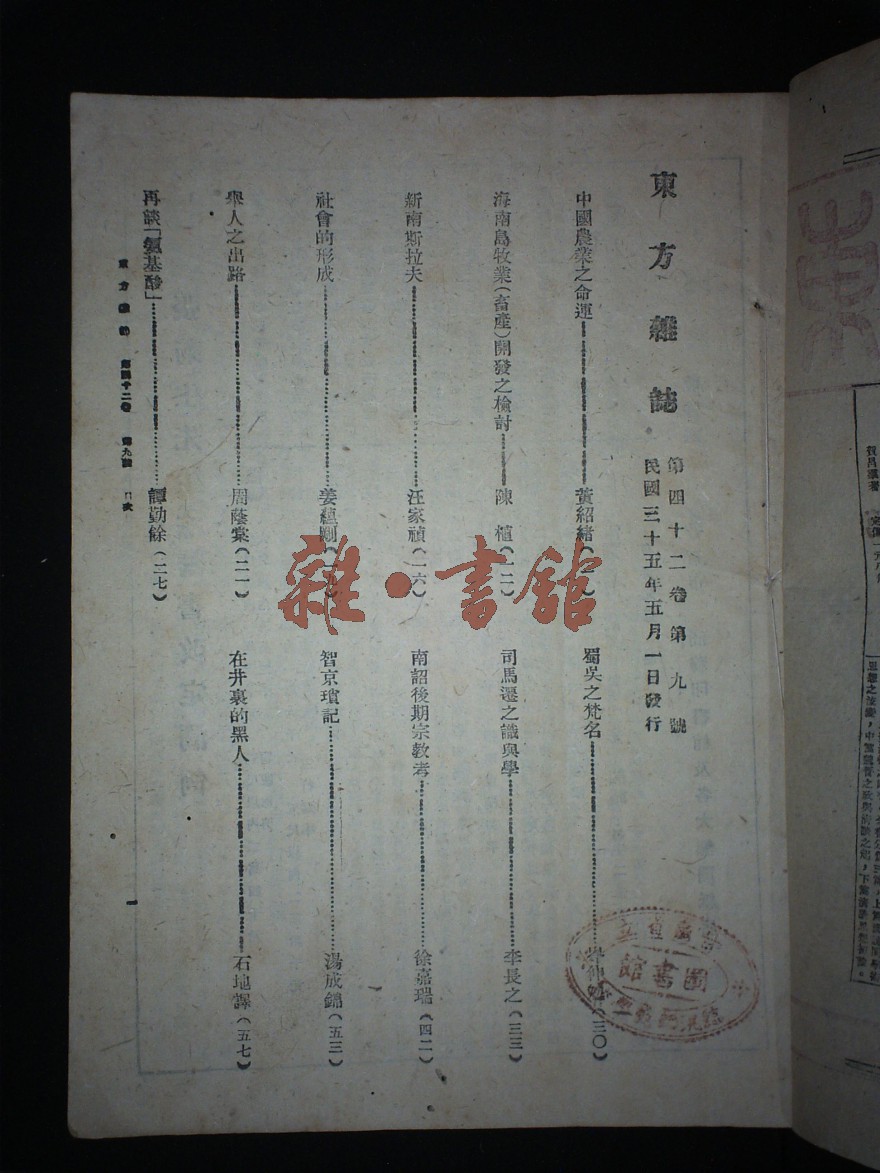 東方雜誌
第四十二卷第九號
民國三十五年五月一日發行
中國農業之命運 黃紹緒
海南島牧業(畜產)開發之檢討 陳植(一二)
新南斯拉夫 汪家禎(一六)
社會的形成 姜蘊剛
舉人之出路 周蔭棠(二一)
再談「氨基酸」 譚勤餘(二七)
蜀吳之梵名 (三〇)
司馬遷之識與學 李長之(三三)
南詔後期宗教考 徐嘉瑞(四二)
智京瑣記 湯成錦(五三)
在井裏的黑人 石地譯(五七)
東方雜誌 第四十二卷 第九號 目次
一
雜·書館
圖書館